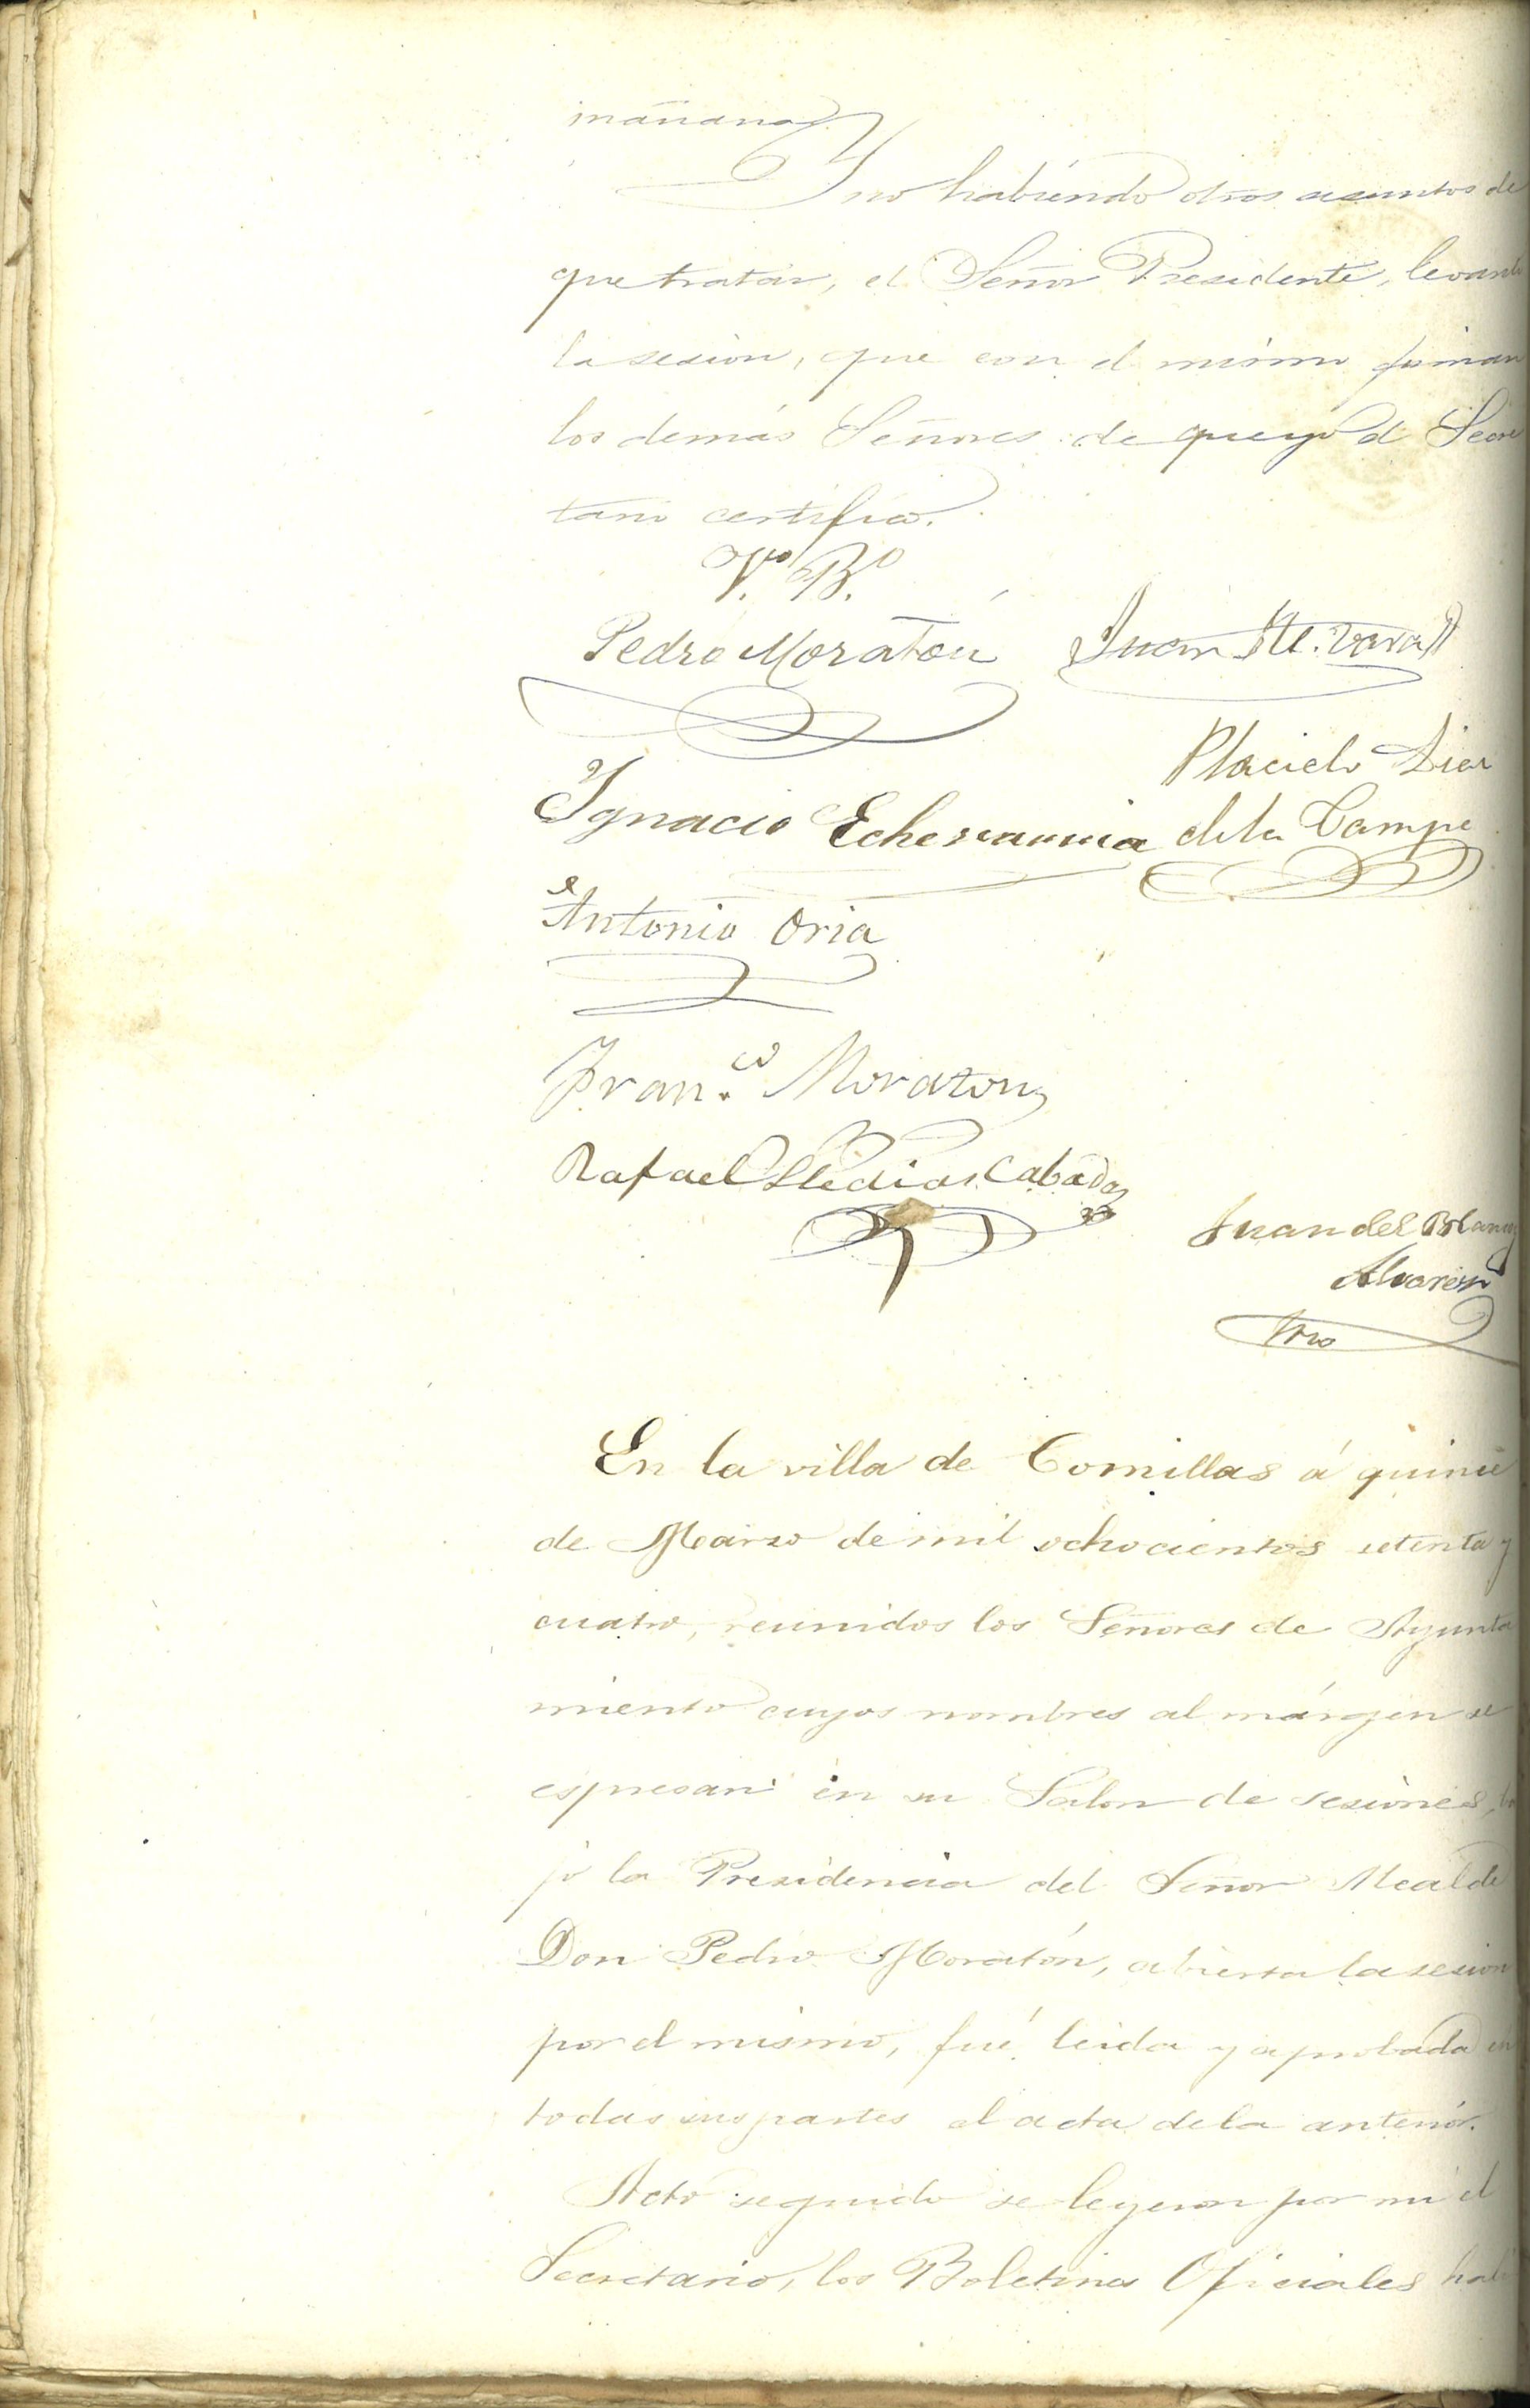 mañana.
Y no habiendo otros asuntos de
que tratar, el Señor Presidente, levantó
la sesion, que con el mismo firman
los demás Señores de que yo el Secre
tario certifico.
V.º B.º
Pedro Moratón Juan M.
Placido Diaz
Ygnacio Echevarria de la Campa
Antonio Oria
Fran.co Moraton
Rafael Cabades
Juan del Blanco
Alvarez
Srio
En la villa de Comillas á quince
de Marzo de mil ochocientos setenta y
cuatro, reunidos los Señores de Ayunta
miento cuyos nombres al márgen se
espresan en su Salon de sesiones, ba
jo la Presidencia del Señor Alcalde
Don Pedro Moratón, abierta la sesion
por el mismo, fué leida y aprobada en
todas sus partes el acta de la anteriór.
Acto seguido se leyeron por mi el
Secretario, los Boletines Oficiales habi